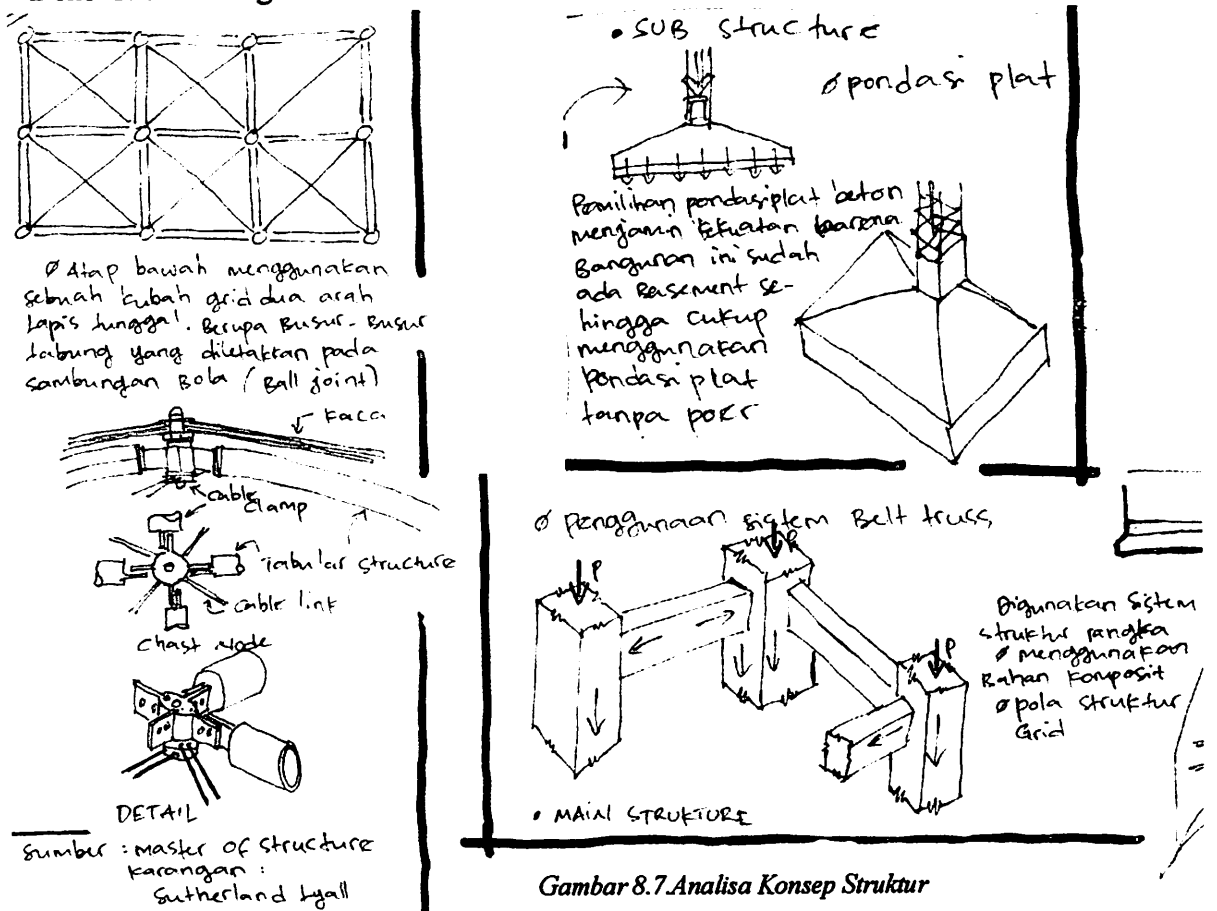 Ø Atap bawah menggunakan
sebuah kubah grid dua arah
Lapis tunggal. Berupa Busur - Busur
tabung yang diletakkan pada
sambungan Bola (Ball joint)
kaca
cable
clamp
Tabular structure
cable link
Chast Node
DETAIL
Sumber : master of structure
karangan :
Sutherland Lyall
• SUB structure
Ø pondasi plat
Pemilihan pondasi plat beton
menjamin kekuatan karena
Bangunan ini sudah
ada Basement se-
hingga cukup
menggunakan
pondasi plat
tanpa poer
Ø Penggunaan sistem Belt truss
P
P
P
Digunakan Sistem
struktur rangka
Ø menggunakan
Bahan komposit
Ø pola struktur
Grid
• MAIN STRUKTURE
Gambar 8.7.Analisa Konsep Struktur